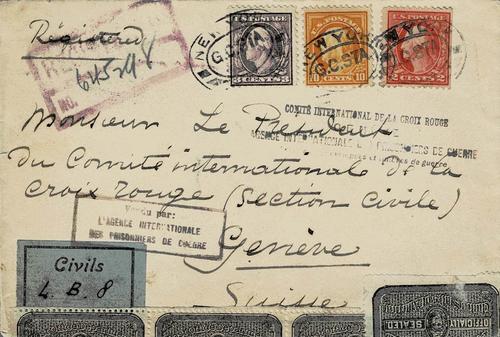 Registered
REGISTERED
NO.
U.S. POSTAGE
3 CENTS 3
U.S. POSTAGE
10 CENTS 10
U.S. POSTAGE
2 CENTS 2
NEW YORK
G.C. STA
NEW YORK
G.C. STA
COMITÉ INTERNATIONAL DE LA CROIX ROUGE
AGENCE INTERNATIONALE DES PRISONNIERS DE GUERRE
Monsieur Le President
du Comité internationale de la
Croix rouge (Section Civile)
Genève
Suisse
Vendu par:
L'AGENCE INTERNATIONALE
DES PRISONNIERS DE GUERRE
Civils
L. B. 8
OFFICIALLY
SEALED